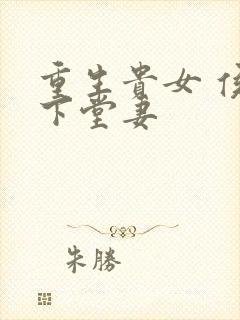 重生貴女
下堂妻
朱勝